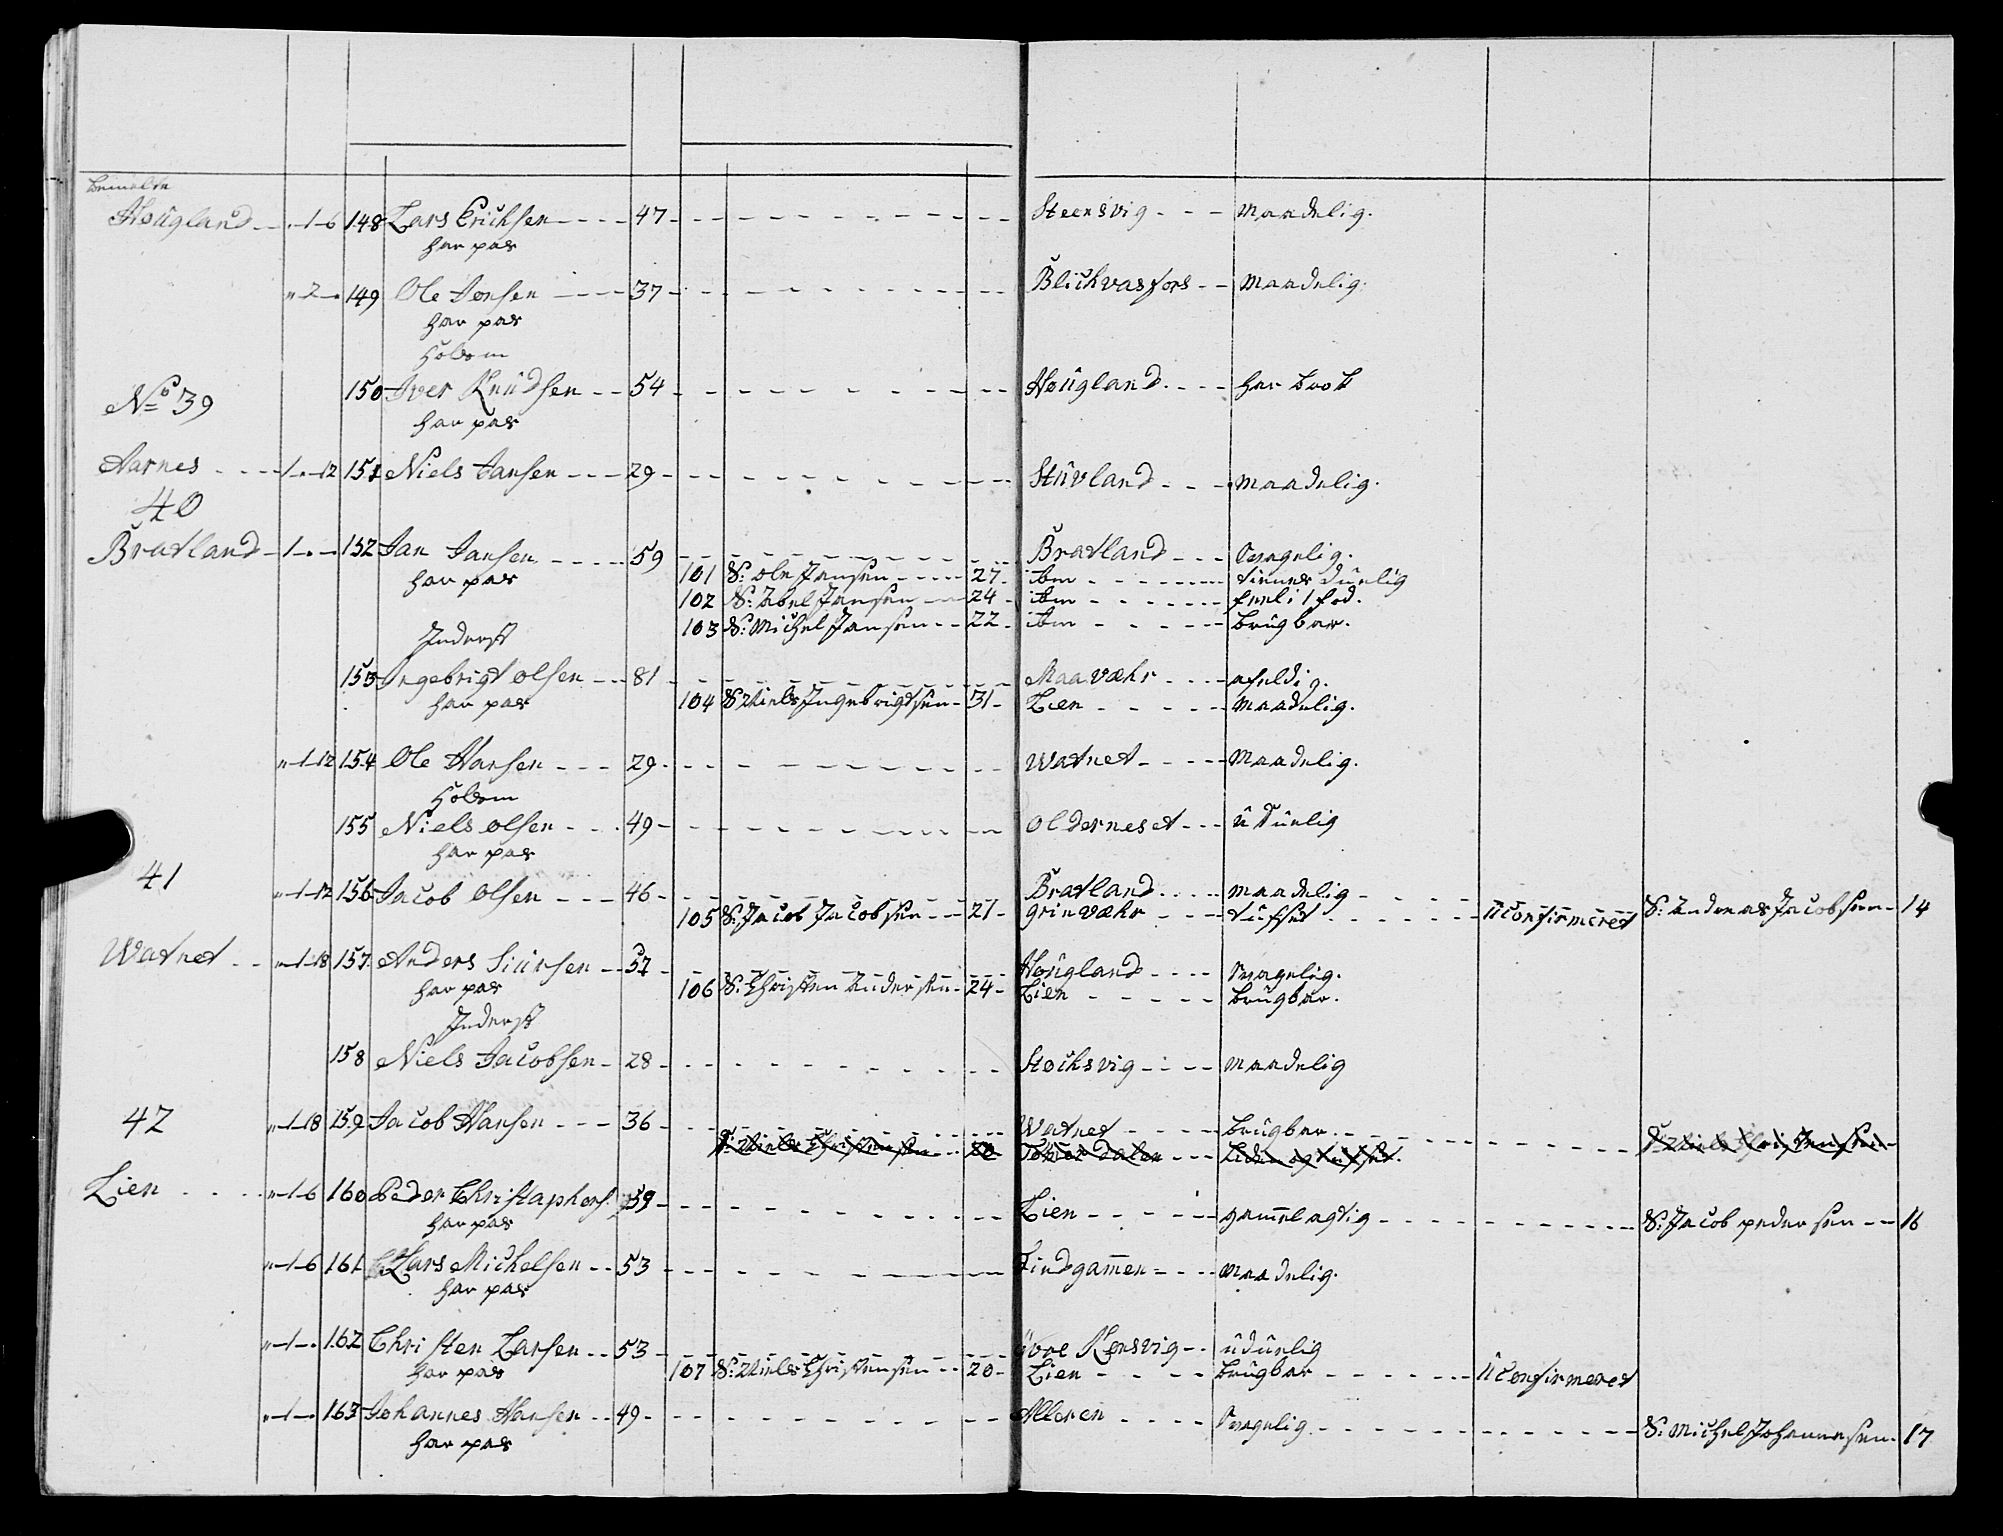 bemelte
Hougland - - " 1 - 6 148 Lars Erichsen - - - - 47 - - - Steensvig - - - maadelig.
har pas
" 2 - . 149 Ole Jonsen - - - 37 - - - Blichvasfors - - maadelig.
har pas
Huusm
No 39 150 Iver Knudsen - - 54 - - - Hougland. - - - har brok
har pas
Aarnes - - - - 1 . - 12 151 Niels Jansen - - - 29 - - - Stüvland - - - maadelig.
40
Bratland - 1 - . - 152 Jan Jansen - - - - 59 - - - Bratland - - - Svagelig.
har pas 101 S: Ole Jansen - - - - 27. itm - - - tienes duelig
102 S: Abel Jansen - - 24 - itm - - - feel i 1 fod.
103 S: Michel Jansen - - 22 - itm - - - brugbar.
Inderst
153 Ingebrigt olsen - - - 81 - - - Maaværk - - - afeldig.
har pas 104 S Niels Ingebrigtsen - 31 - Lien - - - maadelig.
" 1 - 12 154 Ole Hansen - - - 29 - - - Watnet - - - - maadelig.
Huusm
155 Niels olsen - - - 49 - - - Olderneset - - - uduelig
har pas
41 " 1 - 12 156 Jacob olsen - - - 46 - - - Bratland - - - maadelig
105 S: Jacob Jacobsen - - 21 - grinværk - - - tufset - - - uconfirmeret S: Andreas Jacobsen - 14
Watnet - - " 1 - 18 157 Anders Siursen - - 57 - - - Hougland - - - - Svagelig.
har pas 106 S: Christen Andersen - 24 - Lien - - - - - brugbar.
Inderst
158 Niels Jacobsen - 28 - - - Stocksvig - - - - maadelig
42 " 1 - 18 159 Jacob Hansen - - - 36 - - - Watnet - - - - brugbar.
S: Niels Christensen - - 20
Lien - - - - " 1 - 6 160 Peder Christophers. 59 - - - Lien - - - - gammelagtig - - - S: Jacob pedersen - - 16
har pas
" 1 - 6 161 Lars Michelsen - - 53 - - - Findgammen - - - maadelig.
har pas
" 1 - . 162 Christen Larsen - - 53 - - - övre Rensvig - - uduelig
har pas 107 S: Niels Christensen - - 20 - Lien - - - - brugbar - - - - uconfirmeret
" 1 - 163 Johannes Hansen - - 49 - - - Alleren - - - - Svagelig - - - S: Michel Johannesen - 17
har pas